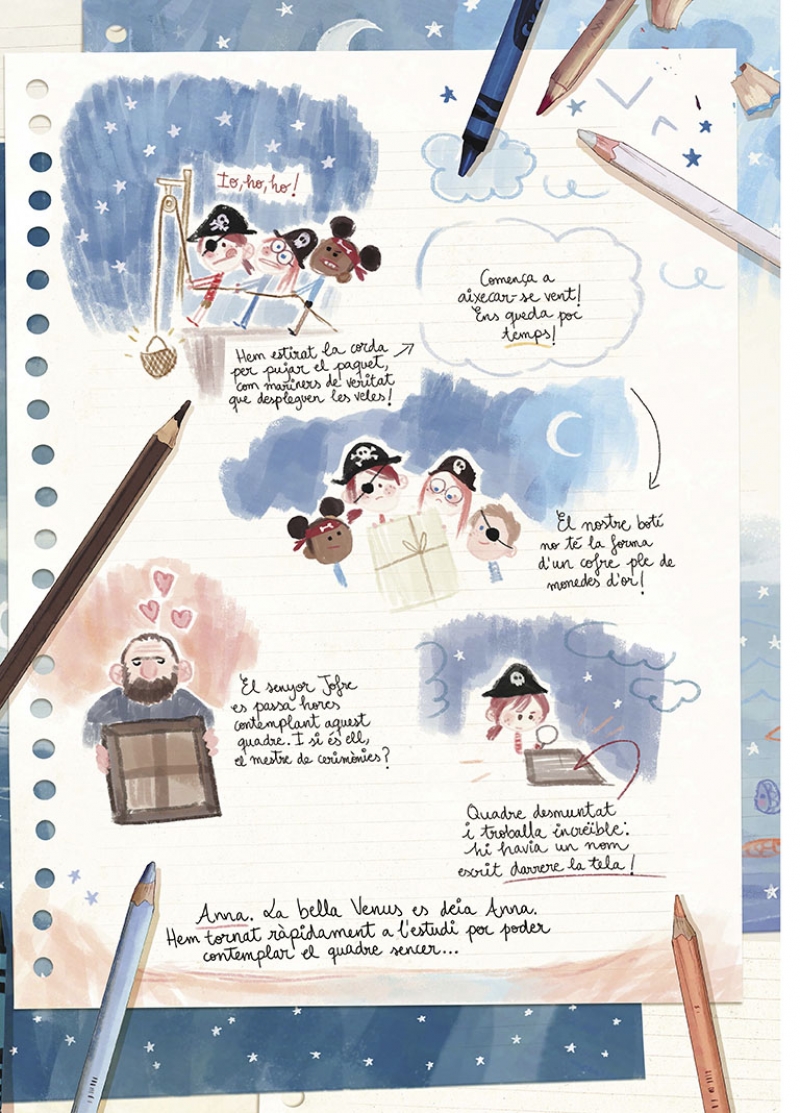 Io, ho, ho!
Hem estirat la corda
per pujar el paquet,
com mariners de veritat
que despleguen les veles!
Comença a
aixecar-se vent!
Ens queda poc
temps!
El nostre botí
no té la forma
d'un cofre ple de
monedes d'or!
El senyor Jofre
es passa hores
contemplant aquest
quadre. I si és ell,
el mestre de cerimònies?
Quadre desmuntat
i troballa increïble:
hi havia un nom
escrit darrere la tela!
Anna. La bella Venus es deia Anna.
Hem tornat ràpidament a l'estudi per poder
contemplar el quadre sencer...